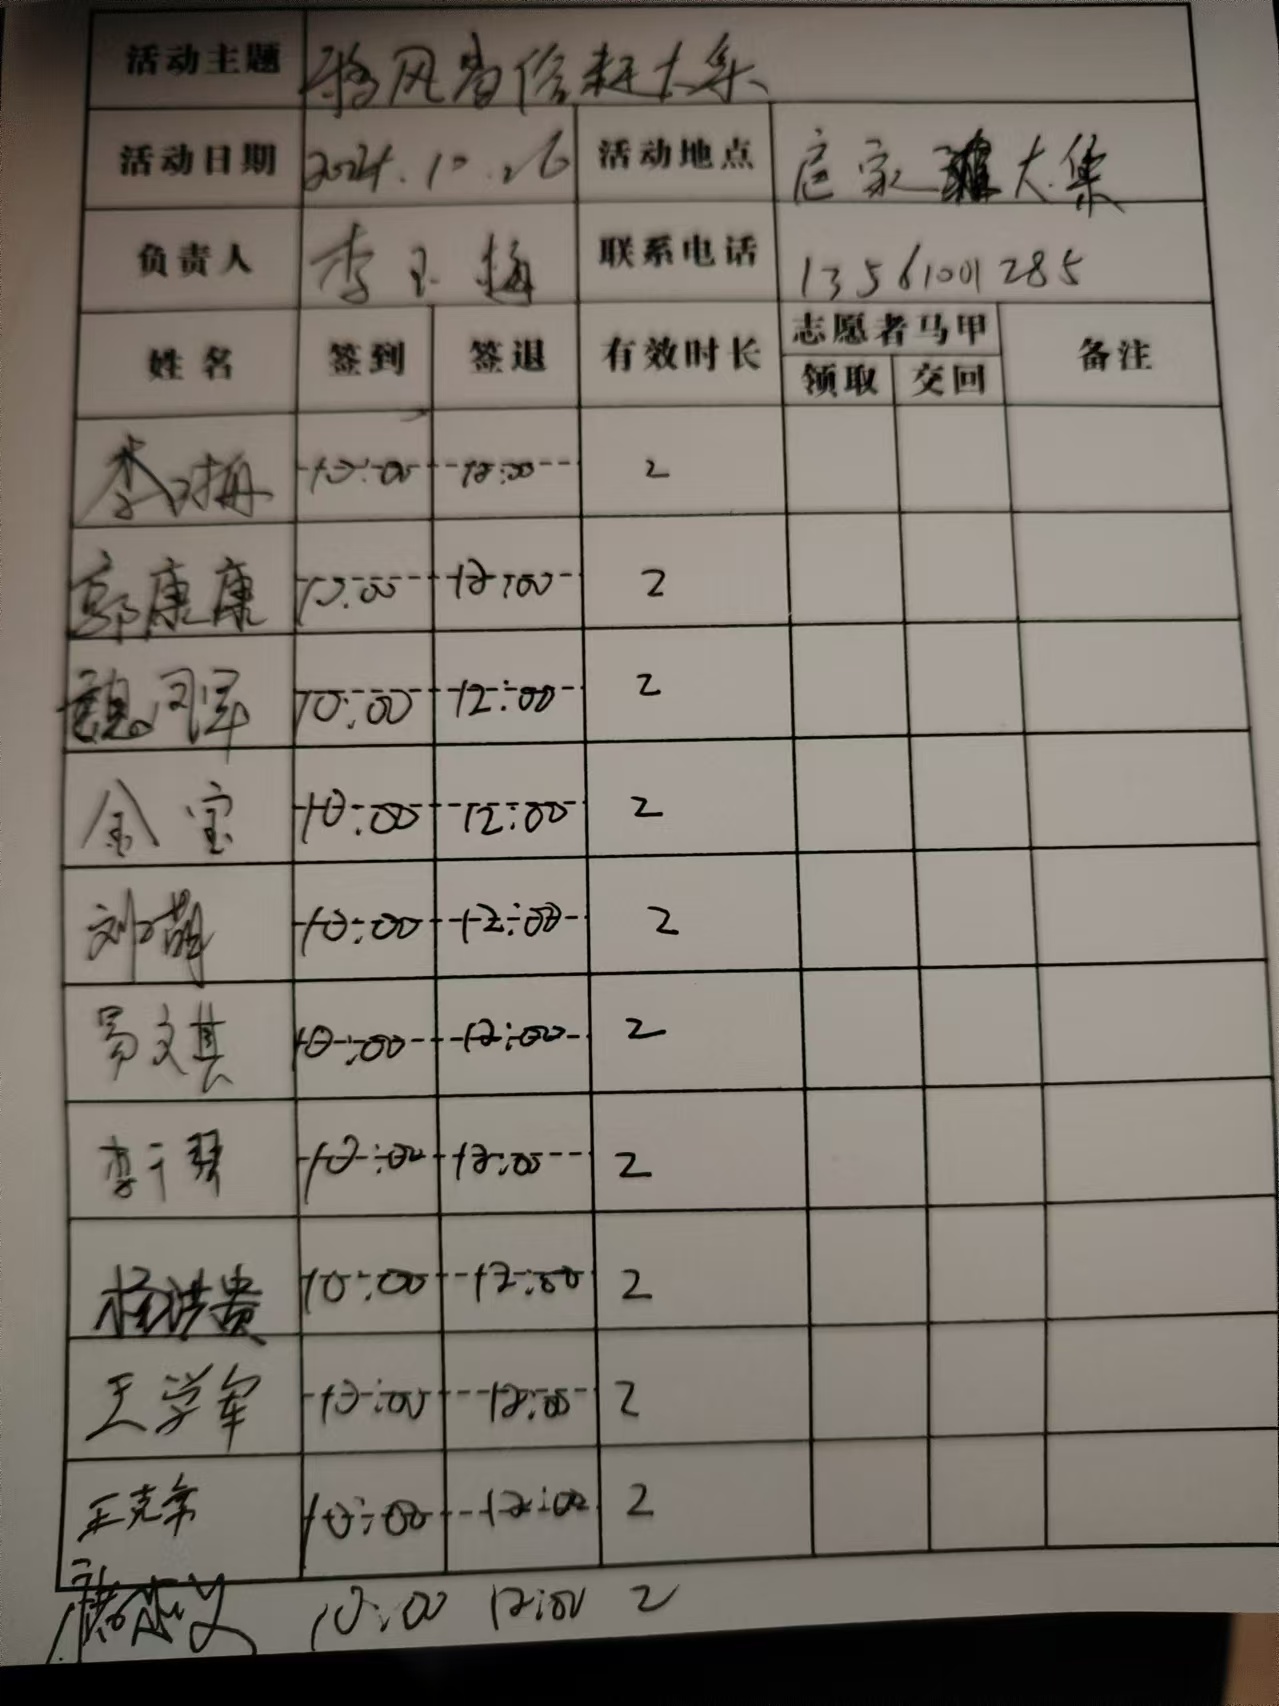 活动主题 移风易俗赶大集
活动日期 2024.10.26 活动地点 庄家大集
负责人 李玉梅 联系电话 13561001285
姓名 签到 签退 有效时长 志愿者马甲 备注
领取 交回
李玉梅 10:00 12:00 2
郭康康 10:00 12:00 2
魏同军 10:00 12:00 2
金宝 10:00 12:00 2
刘萌 10:00 12:00 2
易文其 10:00 12:00 2
李千琴 10:00 12:00 2
杨洪贵 10:00 12:00 2
王学军 10:00 12:00 2
王克第 10:00 12:00 2
10:00 12:00 2